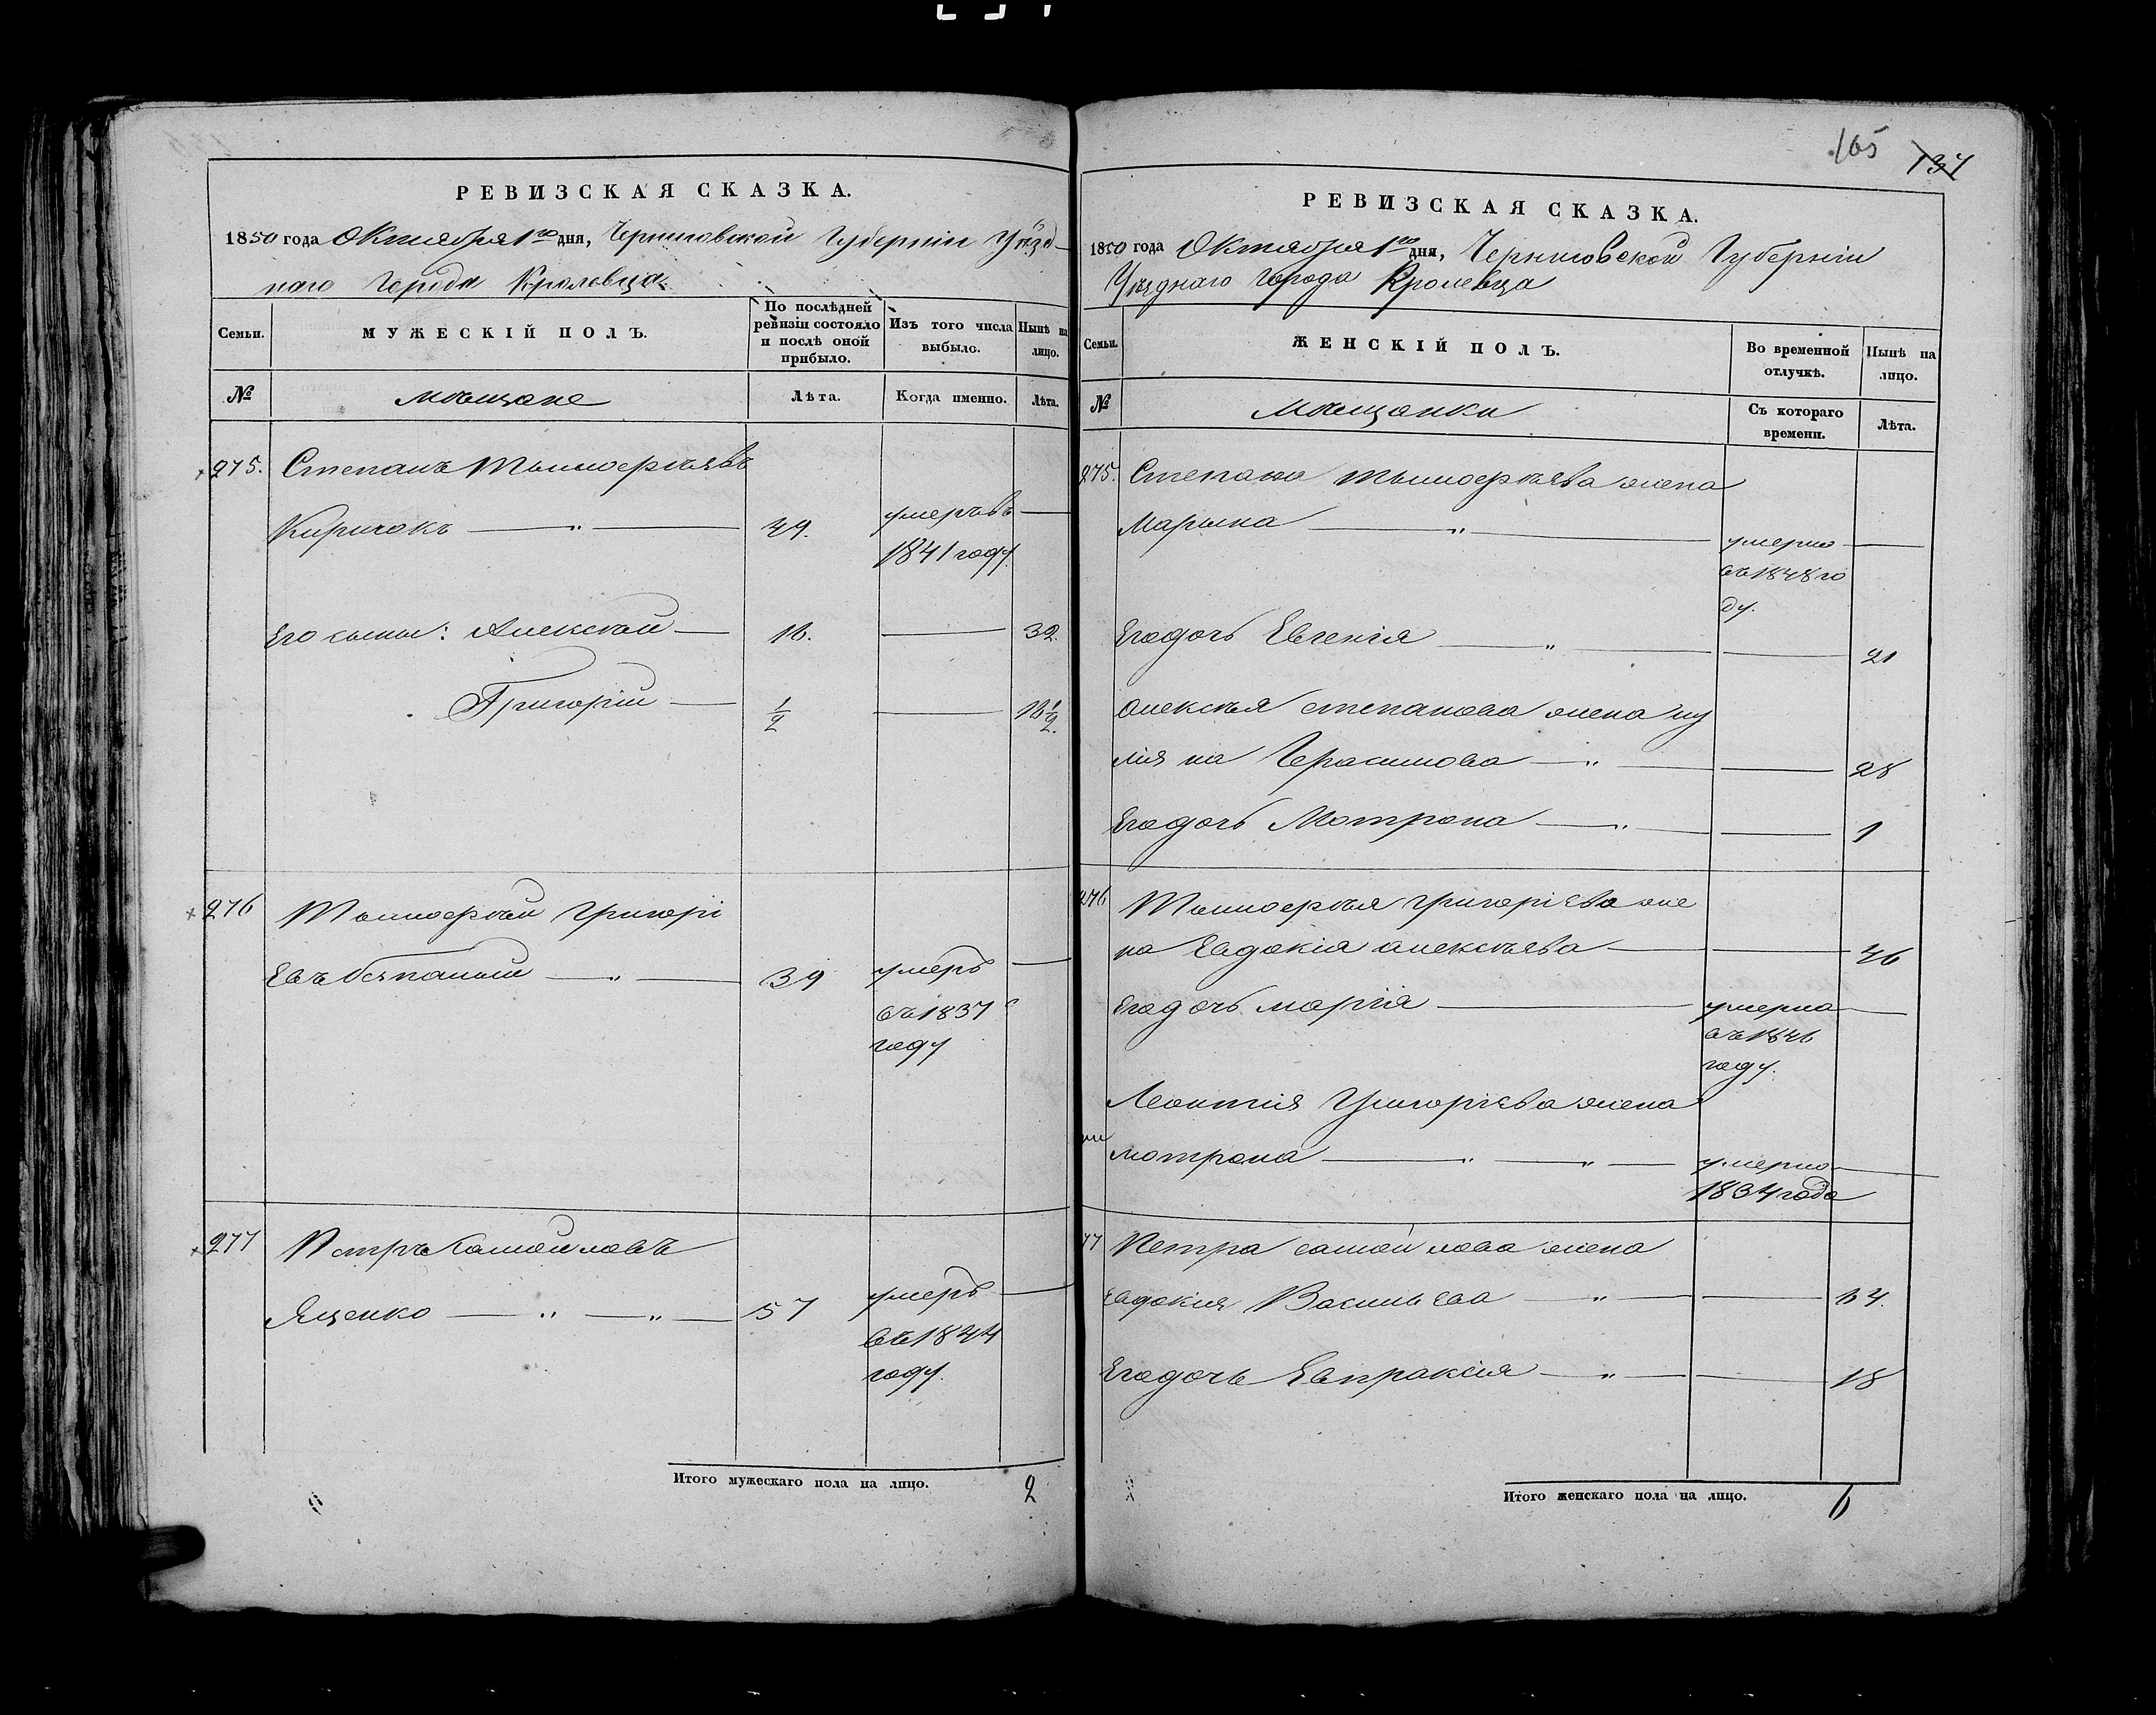 165 137
РЕВИЗСКАЯ СКАЗКА.
1850 года Октября 1го дня, Черниговской Губернїи Уѣзд-
наго Города Кролевца
Семьи.
МУЖЕСКІЙ ПОЛЪ.
По послѣдней ревизіи состояло и послѣ оной прибыло.
Изъ того числа выбыло.
Нынѣ на лицо.
№
мѣщане
Лѣта.
Когда именно.
Лѣта.
275. Степанъ Тимоѳеѣвъ
Киричокъ 49. умеръ въ
1841 году.
Его сыны: Алексѣй 16. 32.
Григорїй 1/2 16 1/2.
276 Тимоѳей Григорї
евъ 39 умеръ
въ 1837
году
277 Петръ Самойловъ
Яценко 57 умеръ
въ 1844
году.
Итого мужескаго пола на лицо. 2
РЕВИЗСКАЯ СКАЗКА.
1850 года Октября 1го дня, Черниговской Губернїи
Уѣзднаго Города Кролевца
Семьи.
ЖЕНСКІЙ ПОЛЪ.
Во временной отлучкѣ.
Нынѣ на лицо.
№
мѣщанки
Съ котораго времени.
Лѣта.
275. Степана Тимоѳеѣва жена
Марина умерла
въ 1848 го
ду.
Егадочь Евгенїя 21
Алексѣя Степанова жена иу
лия на Герасимова 28
Егадочь Мотрона 1
276 Тимоѳея Григорїева же
на Евдокїя Алексѣева 46
Егадочь Марїя умерла
въ 1846
году.
Леонтїя Григорїева жена
Мотрона умерла
1834 года
77 Петра Самойлова жена
Евдокия Васильева 64.
Егадочь Евпраксїя 18
Итого женскаго пола на лицо. 6